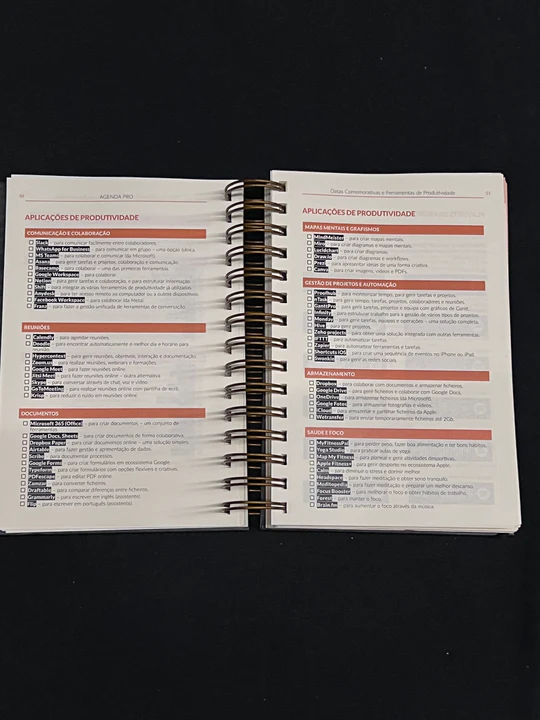 AGENDA PRO
APLICAÇÕES DE PRODUTIVIDADE
COMUNICAÇÃO E COLABORAÇÃO
Slack – para comunicar facilmente entre colaboradores.
WhatsApp for Business – para comunicar em grupo – uma opção básica.
MS Teams – para colaborar e comunicar (da Microsoft).
Asana – para gerir tarefas e projetos, colaboração e comunicação.
Basecamp – para colaborar – uma das primeiras ferramentas.
Google Workspace – para colaborar.
Notion – para gerir tarefas e colaboração, e para estruturar informação.
Shift – para integrar as várias ferramentas de produtividade já utilizadas.
Anydesk – para ter acesso remoto ao computador ou a outros dispositivos.
Facebook Workspace – para colaborar (da Meta).
Franz – para fazer a gestão unificada de ferramentas de conversação.
REUNIÕES
Calendly – para agendar reuniões.
Doodle – para encontrar automaticamente o melhor dia e horário para
reunião.
Hypercontext – para gerir reuniões, objetivos, interação e documentação.
Zoom.us – para realizar reuniões, webinars e formações.
Google Meet – para fazer reuniões online.
Jitsi Meet – para fazer reuniões online – outra alternativa.
Skype – para conversar através de chat, voz e vídeo.
GoToMeeting – para realizar reuniões online com partilha de ecrã.
Krisp – para reduzir o ruído em reuniões online.
DOCUMENTOS
Microsoft 365 (Office) – para criar documentos – um conjunto de
ferramentas.
Google Docs, Sheets – para criar documentos de forma colaborativa.
Dropbox Paper – para criar documentos online – de modo simples.
Airtable – para fazer gestão e apresentação de dados.
Scribe – para documentar processos.
Google Forms – para criar formulários em ecossistema Google.
Typeform – para criar formulários com opções flexíveis e criativas.
PDFescape – para editar PDF online.
Zamzar – para converter ficheiros.
Draftable – para comparar diferenças entre ficheiros.
Grammarly – para escrever em inglês (assistente).
Flip – para escrever em português (assistente).
Datas Comemorativas e Ferramentas de Produtividade 91
APLICAÇÕES DE PRODUTIVIDADE
MAPAS MENTAIS E GRAFISMOS
MindMeister – para criar mapas mentais.
Miro – para criar diagramas e mapas mentais.
Lucidchart – para criar diagramas.
Draw.io – para criar diagramas e workflows.
Prezi – para apresentar ideias de uma forma criativa.
Canva – para criar imagens, vídeos e PDFs.
GESTÃO DE PROJETOS E AUTOMAÇÃO
Proofhub – para monitorizar tempo, para gerir tarefas e projetos.
nTask – para gerir tempo, tarefas, projetos, colaboradores e reuniões.
GanttPro – para gerir tarefas, projetos e equipa com gráficos de Gantt.
Infinity – para estruturar trabalho para a gestão de vários tipos de projetos.
Monday – para gerir tarefas, equipas e operações – uma solução completa.
Hive – para gerir projetos.
Zoho projects – para obter uma solução integrada com outras ferramentas.
IFTTT – para automatizar tarefas.
Zapier – para automatizar ferramentas e tarefas.
Shortcuts iOS – para criar uma sequência de eventos no iPhone ou iPad.
– para gerir as redes sociais.
ARMAZENAMENTO
Dropbox – para colaborar com documentos e armazenar ficheiros.
Google Drive – para gerir ficheiros e colaborar com Google Docs.
OneDrive – para armazenar ficheiros (da Microsoft).
Google Fotos – para armazenar fotografias e vídeos.
iCloud – para armazenar e partilhar ficheiros da Apple.
Wetransfer – para enviar temporariamente ficheiros até 2Gb.
SAÚDE E FOCO
MyFitnessPal – para perder peso, fazer boa alimentação e ter bons hábitos.
Yoga Studio – para praticar aulas de yoga.
Map My Fitness – para planear e gerir atividades desportivas.
Apple Fitness – para gerir desporto no ecossistema Apple.
Calm – para diminuir o stress e dormir melhor.
Headspace – para fazer meditação e obter sono tranquilo.
Meditopedia – para fazer meditação e preparar um melhor descanso.
Focus Booster – para melhorar o foco e obter hábitos de trabalho.
Forest – para manter o foco.
Brain.fm – para aumentar o foco através da música.